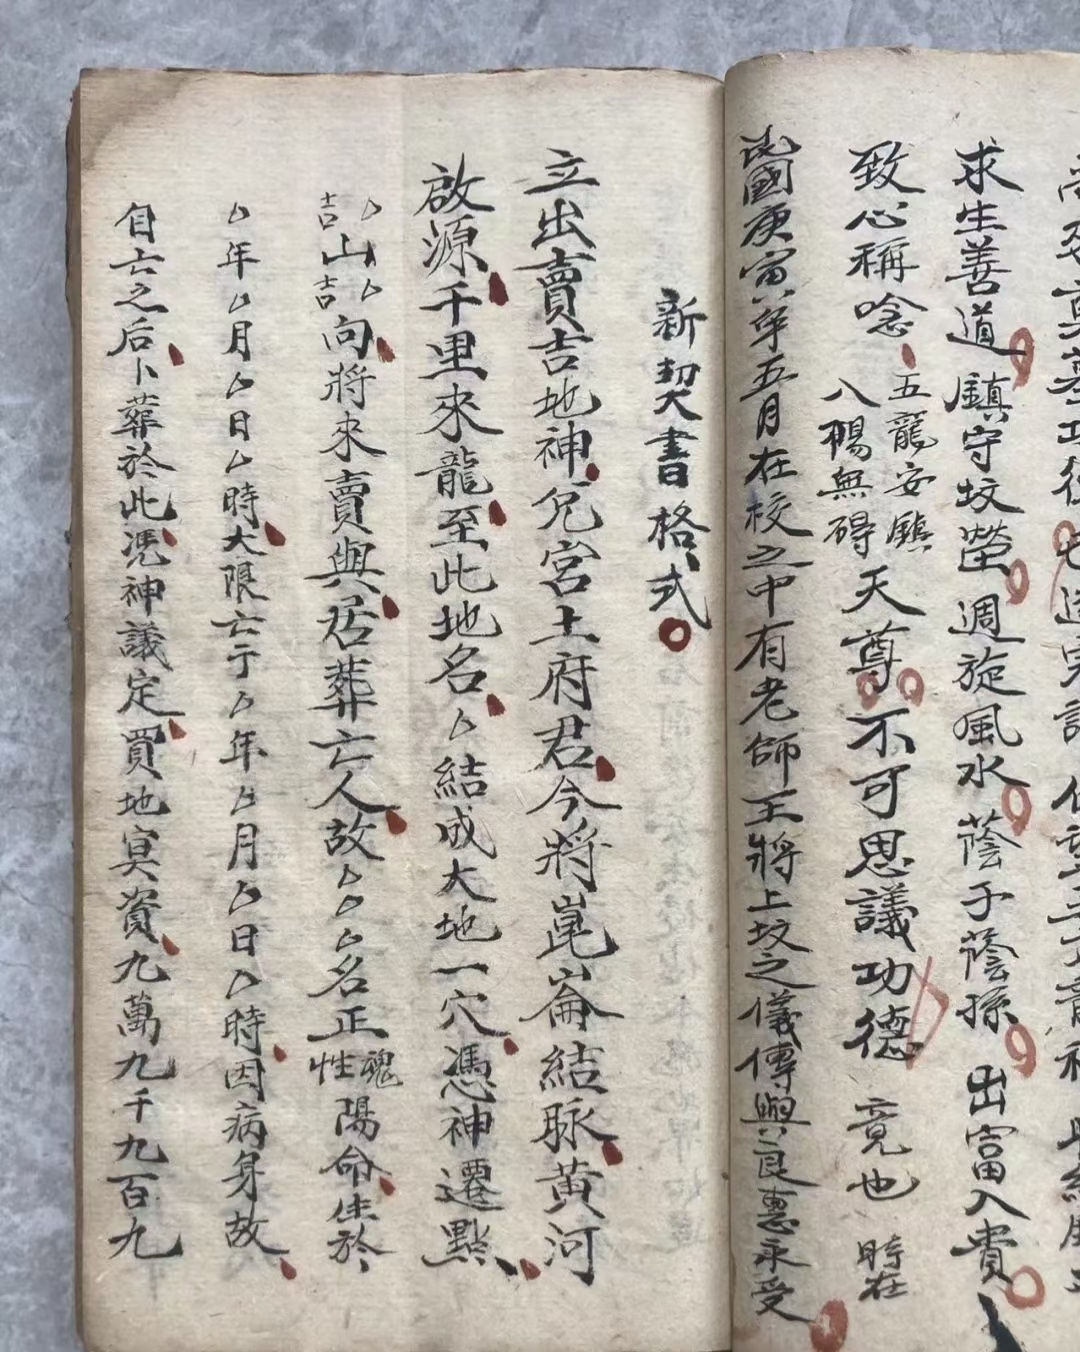 求生善道鎮守坟塋週旋風水蔭子蔭孫出富入貴
致心稱唸五龍安鎮八楊無碍天尊不可思議功德竟也時在
民國庚寅年五月在校之中有老師王將上坟之儀傳與良惠永受
新契書格式
立出賣吉地神兇宮土府君今將崑崙結脉黄河
啟源千里來龍至此地名厶結成大地一穴憑神遷點
厶吉山厶吉向將來賣與居葬亡人故厶厶厶名正魂性陽命生於
厶年厶月厶日厶時大限亡于厶年厶月厶日厶時因病身故
自亡之后卜葬於此凴神議定買地冥資九萬九千九百九